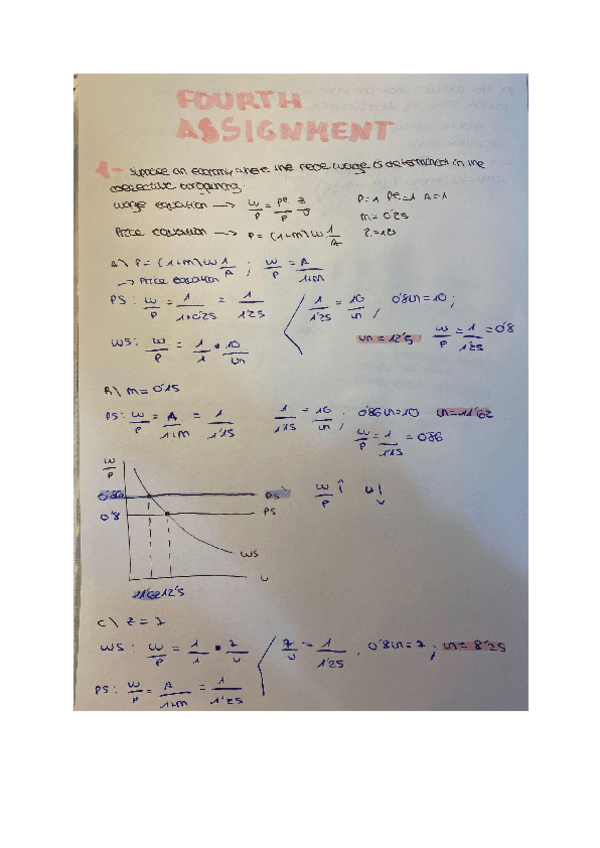 FOURTH
ASSIGNMENT
1- Suppose an economy where the real wage is determined in the
collective bargaining.
Wage equation → W/P = Pe/P z/u P=1 Pe=1 A=1
m=0'25
Price equation → P=(1+m)W 1/A z=10
A) P=(1+m)W 1/A ; W/P = A/1+m
→ Price equation
PS: W/P = 1/1+0'25 = 1/1'25 1/1'25 = 10/un , 0'8un=10 ;
WS: W/P = 1/1 • 10/un un = 12'5 W/P = 1/1'25 = 0'8
B) m=0'15
PS: W/P = A/1+m = 1/1'15 1/1'15 = 10/un ; 0'86un=10 un=11'62
W/P = 1/1'15 = 0'86
W/P
0'86 PS' W/P ↑ u↓
0'8 PS
WS
u
11'62 12'5
C) z=7
WS: W/P = 1/1 • 7/u 7/u = 1/1'25 ; 0'8un=7 ; un= 8'25
PS: W/P = A/1+m = 1/1'25